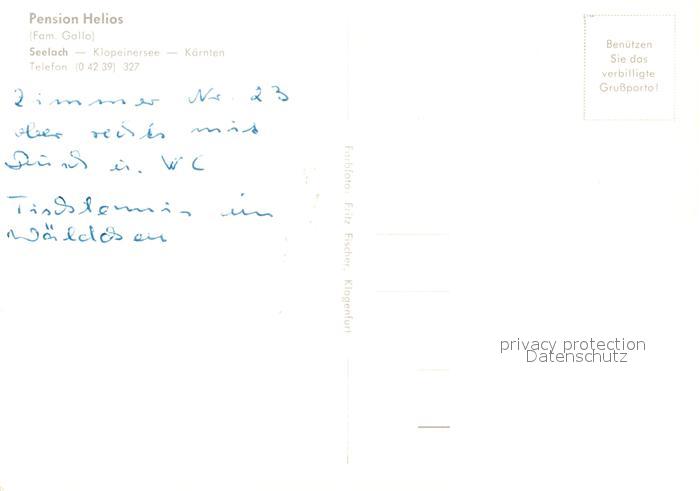 Pension Helios
(Fam. Gallo)
Seelach — Klopeinersee — Kärnten
Telefon (0 42 39) 327
Zimmer Nr. 23
oder rechts mit
Dusch u. WC
Tischtennis im
Wäldchen
Farbfoto: Fritz Fischer, Klagenfurt
Benützen
Sie das
verbilligte
Grußporto!
privacy protection
Datenschutz